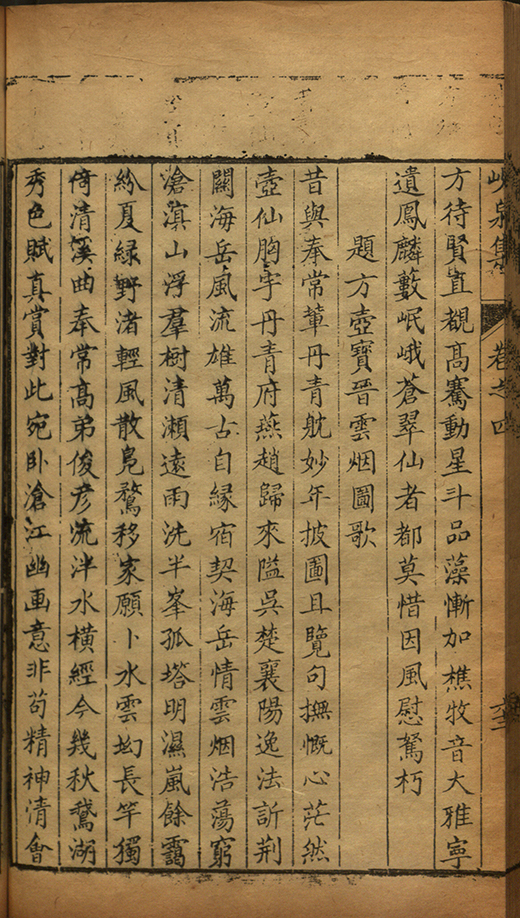 峴泉集 卷之四
方待賢直覩高騫動星斗品藻慚加樵牧音大雅寧
遺鳳麟藪岷峨蒼翠仙者都莫惜因風慰駑朽
題方壺寶晉雲烟圖歌
昔與奉常輩丹青躭妙年披圖且覽句撫慨心茫然
壺仙胸宇丹青府燕趙歸來隘吳楚襄陽逸法訢荆
關海岳風流雄萬古自緣宿契海岳情雲烟浩蕩窮
滄溟山浮羣樹清瀬遠雨洗半峯孤塔明濕嵐餘靄
紛夏緑野渚輕風散鳧鶩移家願卜水雲㘭長竿獨
倚清溪曲奉常高弟俊彦流泮水横經今幾秋鵞湖
秀色賦真賞對此宛卧滄江幽画意非苟精神清會